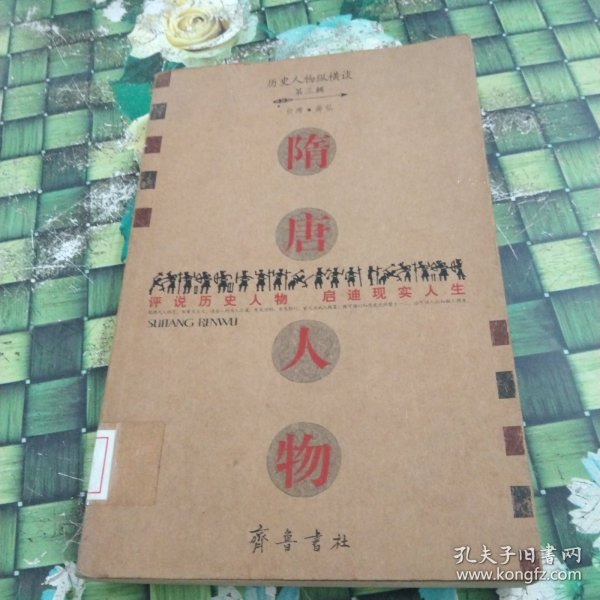 历史人物纵横谈
第三辑
隋
唐
评说历史人物 启迪现实人生
SUITANG RENWU
人
物
齊鲁書社
孔夫子旧书网
www.kongfz.com